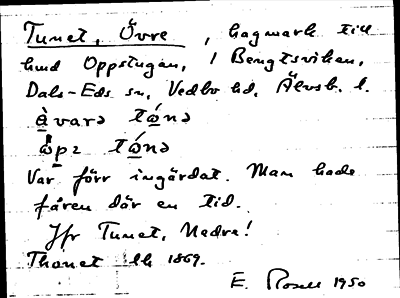 Tunet, Övre, hagmark till
hmd Oppstugan, i Bengtsviken,
Dals-Eds sn, Vedbo hd, Älvsb. l.
àvarə tɷ́nə
tɷ́nə
Var förr ingärdat. Man hade
fåren där en tid.
Jfr Tunet, Nedre!
Thonet lk 1869.
E. 1950